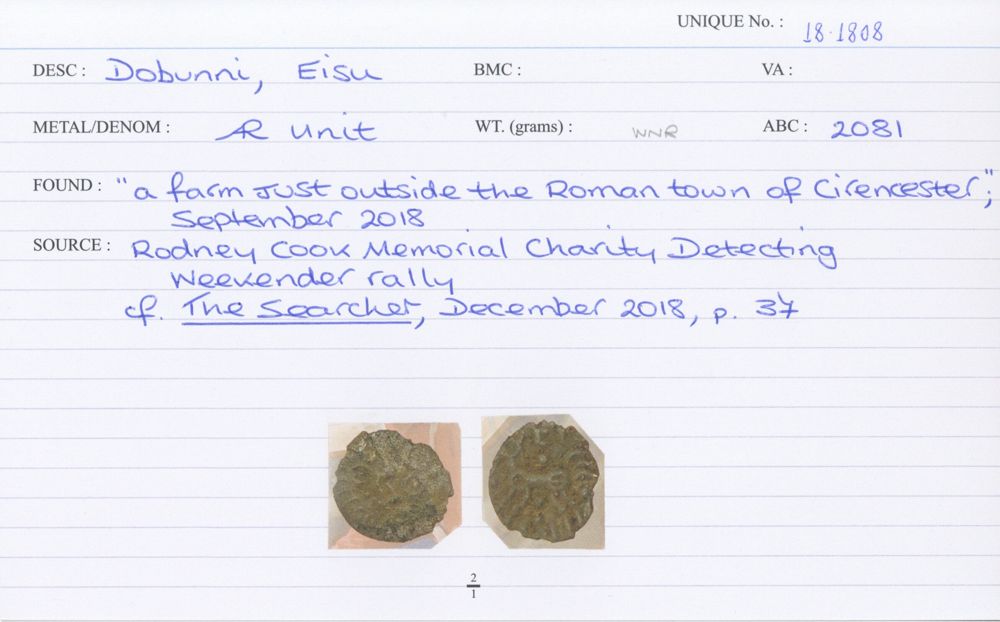 UNIQUE No. : 18.1808
DESC : Dobunni, Eisu BMC : VA :
METAL/DENOM : AR unit WT. (grams) : WNR ABC : 2081
FOUND : "a farm just outside the Roman town of Cirencester";
September 2018
SOURCE : Rodney Cook Memorial Charity Detecting
Weekender rally
cf. The Searcher, December 2018, p. 37
2
1